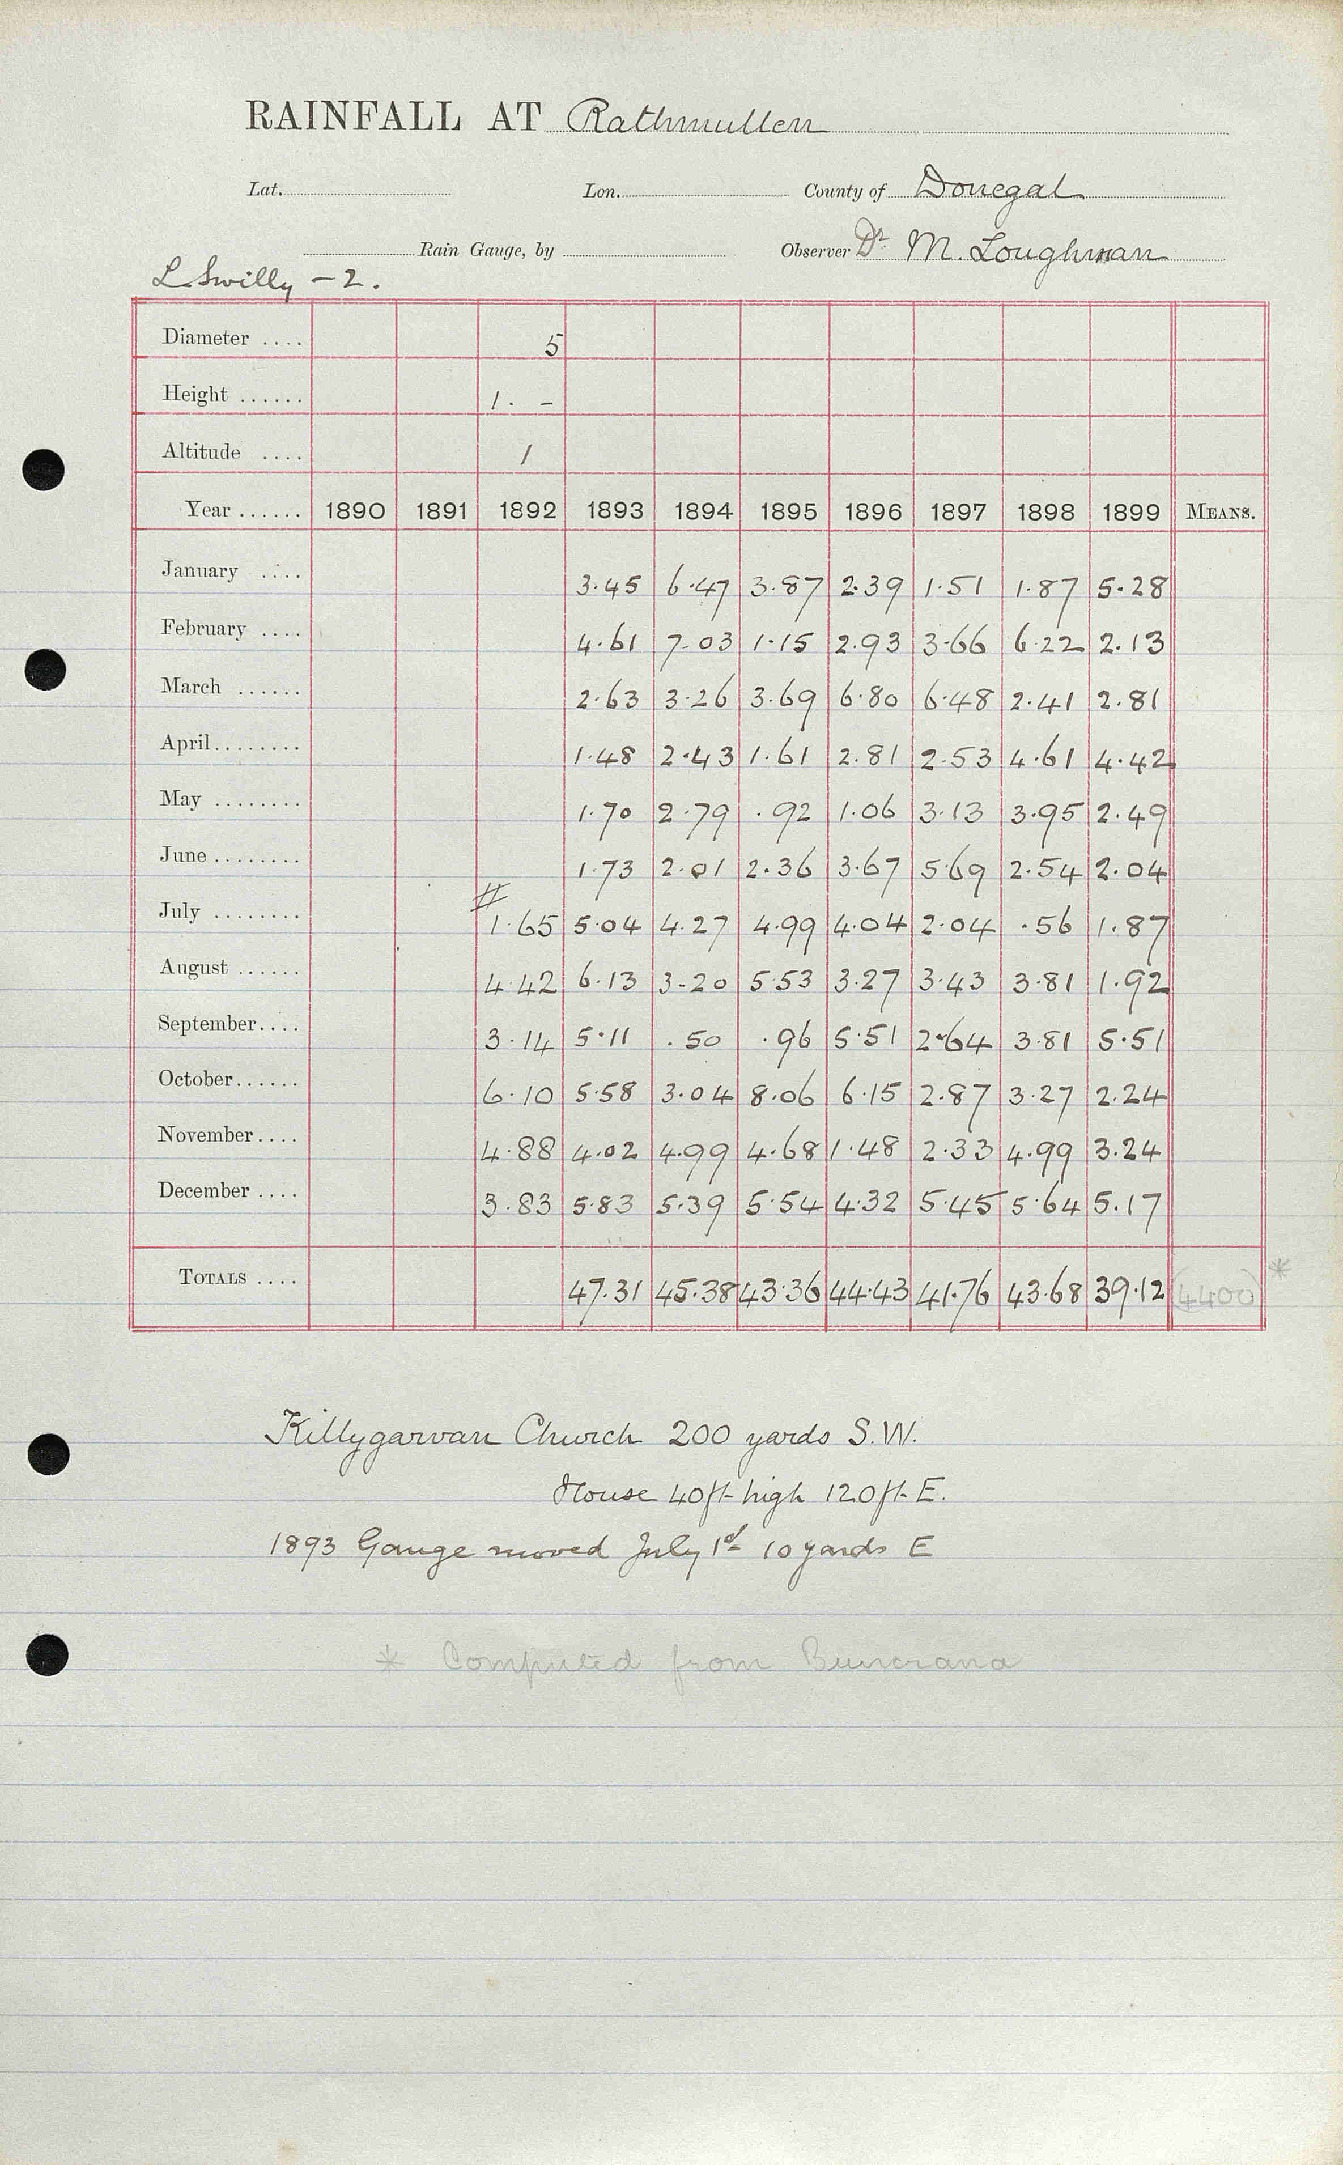 RAINFALL AT Rathmullen
Lat. Lon. County of Donegal
Rain Gauge, by Observer Dr. M. Loughnan
L. Swilly - 2.
Diameter .... 5
Height ...... 1. -
Altitude .... 1
Year ...... 1890 1891 1892 1893 1894 1895 1896 1897 1898 1899 MEANS.
January .... 3.45 6.47 3.87 2.39 1.51 1.87 5.28
February .... 4.61 7.03 1.15 2.93 3.66 6.22 2.13
March ...... 2.63 3.26 3.69 6.80 6.48 2.41 2.81
April........ 1.48 2.43 1.61 2.81 2.53 4.61 4.42
May ........ 1.70 2.79 .92 1.06 3.13 3.95 2.49
June ........ 1.73 2.01 2.36 3.67 5.69 2.54 2.04
#
July ........ 1.65 5.04 4.27 4.99 4.04 2.04 .56 1.87
August ...... 4.42 6.13 3.20 5.53 3.27 3.43 3.81 1.92
September.... 3.14 5.11 .50 .96 5.51 2.64 3.81 5.51
October...... 6.10 5.58 3.04 8.06 6.15 2.87 3.27 2.24
November.... 4.88 4.02 4.99 4.68 1.48 2.33 4.99 3.24
December .... 3.83 5.83 5.39 5.54 4.32 5.45 5.64 5.17
TOTALS .... 47.31 45.38 43.36 44.43 41.76 43.68 39.12 (4400) *
Killygarvan Church 200 yards S.W.
House 40ft high 120ft E.
1893 Gauge moved July 1st 10 yards E
* Computed from Buncrana